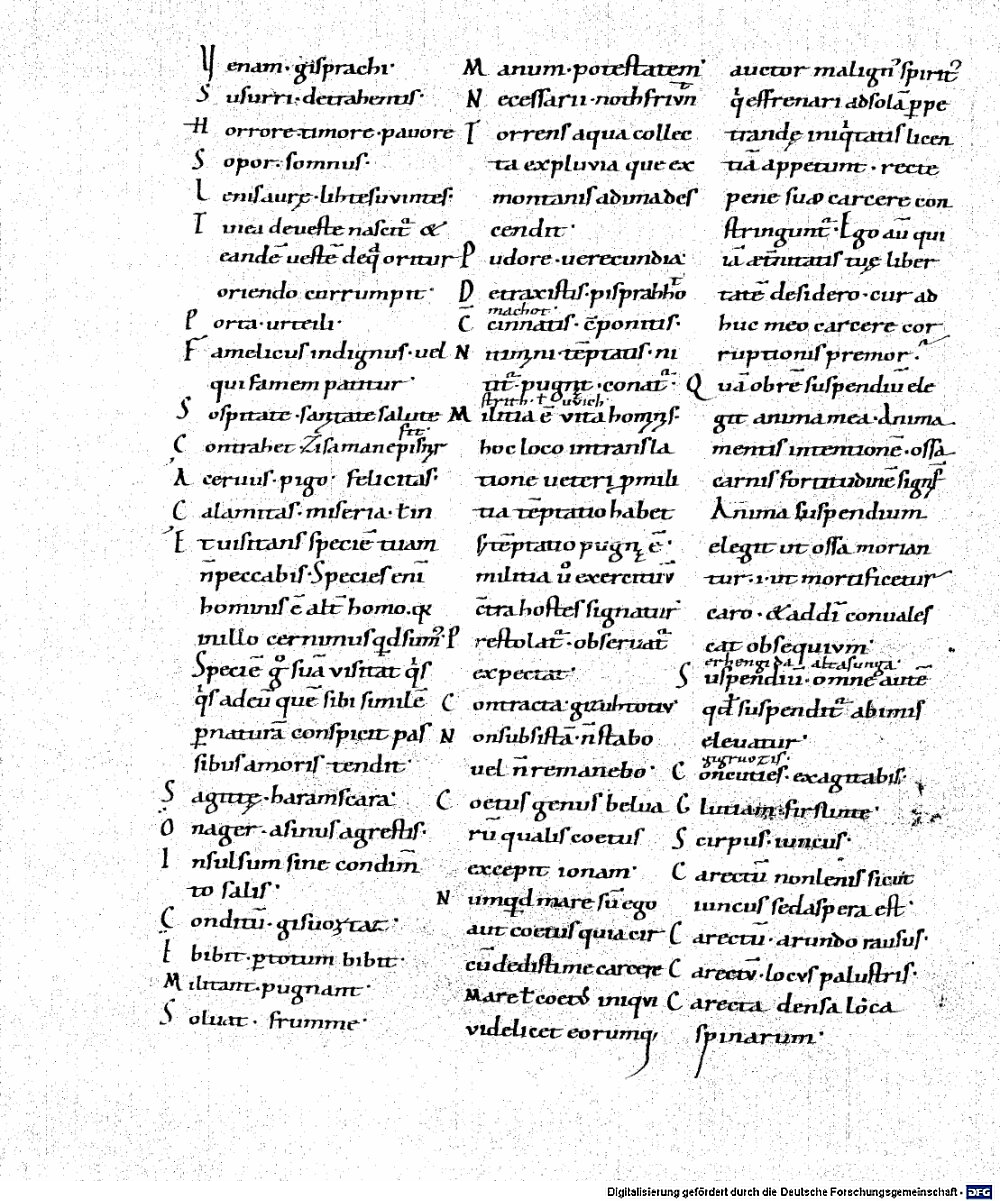 Venam · gisprachi ·
Susurri · detrahentis ·
Horrore timore · pauore
Sopor · somnus ·
Lenis aurę · libtes uuintes ·
Tinea de ueste nascit᷑ &
eandē uestē de q̄ oritur
oriendo currumpit ·
Porta · urteili ·
Famelicus indignus · uel
qui famem patitur ·
Sospitate · sanitate salute
sit ·
Contrahet
Aceruus · pigo · felicitas ·
Calamitas · miseria · ł in
Et uisitans speciē tuam
n̄ peccabis · Species enī
hominis ē alt̄ homo ·
in illo cernimus qd̄ sum᷒
Speciē gͦ suā visitat qͥs
qͥs ad eū quē sibi similē
ꝑ naturā conspicit pas
sibus amoris tendit ·
Sagittę · haramscara ·
Onager · asinus agrestis ·
Insulsum sine condim̄
to salis ·
Conditū · gisuoztaz ·
Ebibit · ꝑ totum bibit ·
Militant · pugnant ·
Soluat · frumme ·
Manum · potestatem ·
Necessarii · nothfrivn̄
Torrens aqua collec
ta ex pluvia que ex
montanis ad ima des
cendit ·
Pudore · uerecundia ·
Detraxistis · pisprahhto
machot ·
C̄cinnatis · c̄ponitis ·
tēptatis · ni
tit᷑ · pugnt᷑ · conat᷑ ·
strith · ł
Militia ē vita hominis ·
hoc loco in transla
tione ueteri ꝓ mili
tia tēptatio habet
tēptatio pugnę ē ·
militia uͦ exercitiū
c̄tra hostes signatur
Prestolat᷑ · obseruat᷑
expectat ·
Contracta ·
Non subsistā · n̄ stabo
uel n̄ remanebo ·
Coetus genus belua
rū qualis coetus
excepit ionam ·
Numqd mare sū ego
aut coetus quia cir
cūdedisti me carcere
Mare ł coetꝰ iniqui
videlicet eorumq;
auctor malign᷒ spirit᷒
qͥ effrenari ad sola ꝑpe
trandę iniqͥtatis licen
tiā appetunt · recte
pene suę carcere con
stringunt᷑ · Ego aū qui
iā ætn̄itatis tuę liber
tatē desidero · cur ad
huc meo carcere cor
ruptionis premor ·
Quā ob rē suspendiū ele
git anima mea · Anima
mentis intentionē · ossa
carnis fortitudinē signf̄
Anima suspendium
elegit ut ossa morian
tur · i · ut mortificetur
caro · & addī conuales
cat obsequivm ·
erhengida · altasunga ·
Suspendiū · omne autē
qd̄ suspendit᷑ ab imis
eleuatur ·
gigruozis ·
Concuties · exagitabis ·
Gluttiam · firslinte ·
Scirpus · iuncus ·
Carectū non lenis sicut
iuncus sed aspera est ·
Carectū · arundo rausus ·
Carectū · locvs palustris ·
Carecta densa loca
spinarum ·
Digitalisierung gefördert durch die Deutsche Forschungsgemeinschaft - DFG